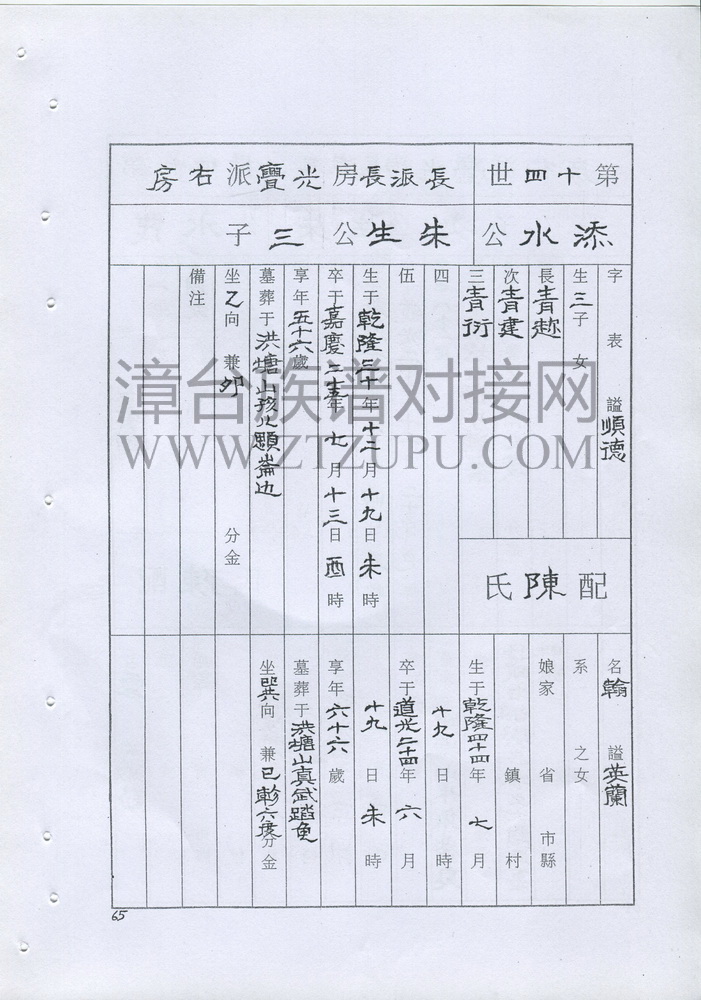 第十四世
長派長房光寶派右房
添水公
朱生公三子
字表 諡順德
生三子 女
長青趂
次青建
三青衍
四
伍
生于乾隆三十年十二月十九日未時
卒于嘉慶二十五年七月十三日酉時
享年五十六歲
墓葬于洪塘山孩儿題崙边
坐乙向 兼卯 分金
備注
配陳氏
名翰 諡英蘭
系 之女
娘家 省 市縣
鎮 村
生于乾隆四十四年七月
十九日 時
卒于道光二十四年六月
十九日未時
享年六十六歲
墓葬于洪塘山真武踏龟
坐巽向 兼巳 六度分金
漳台族谱对接网
WWW.ZTZUPU.COM
65